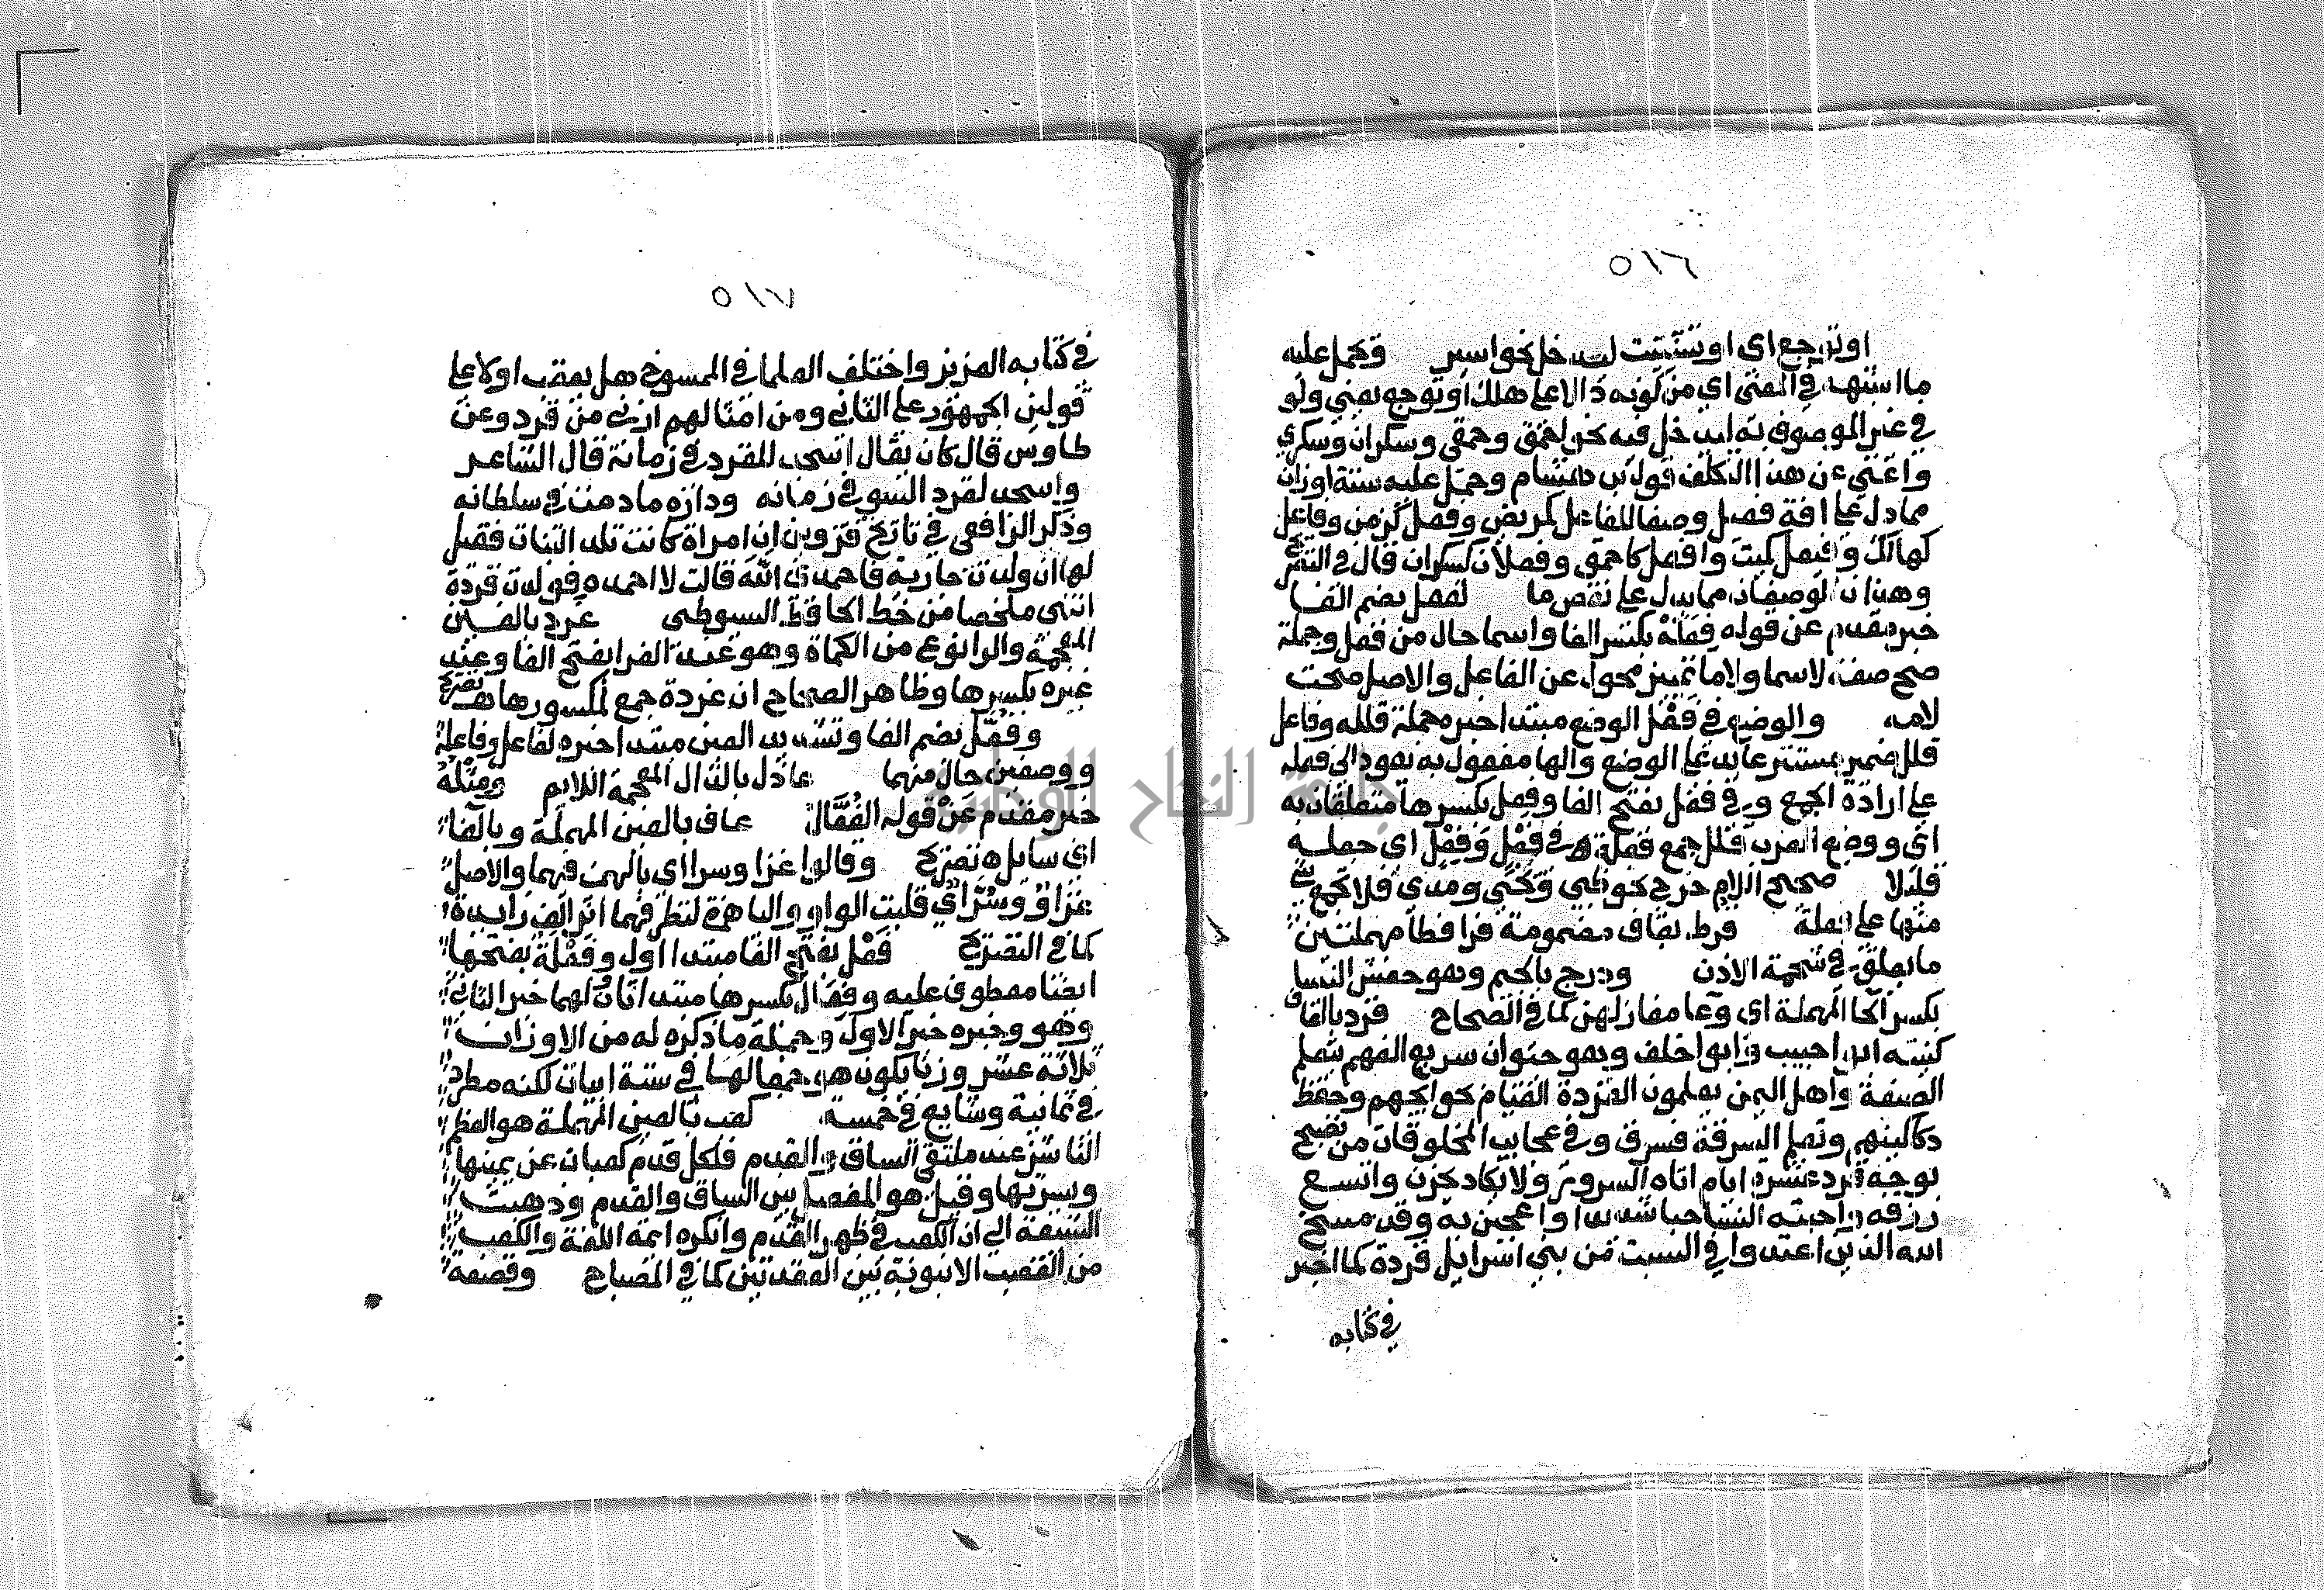 ٥١٦
او توجع اى او تشتت ليدخل نحو اسير وحمل عليه
ما اشبهه فى المعنى اى من كونه دالا على هلك او توجع يعنى ولو
فى غير الموصوف به ليدخل فيه نحو احمق وحمقى وسكران وسكرى
واغنى عن هذا التكلف قول بن هشام وحمل عليه ستة اوزان
مما دل على افة فعيل وصفا للفاعل كمريض وفعل كزمن وفاعل
كهالك وفيعل كميت وافعل كاحمق وفعلان كسكران قال فى التصريح
وهذان الوصفان مما يدل على نقص ما لفعل بضم الفا
خبر مقدم عن قوله فعلة بكسر الفا واسما حال من فعل وجملة
صح صفة لاسما ولاما تمييز محول عن الفاعل والاصل صحت
لامه والوضع فى فعل الوضع مبتدا خبره جملة قلله وفاعل
قلل ضمير مستتر عايد على الوضع والها مفعول به يعود الى فعله
على ارادة الجمع وفى فعل بفتح الفا وفعل بكسرها متعلقان به
اى ووضع العرب قلل جمع فعلة فى فعل وفعل اى جعله
قليلا صحيح اللام خرج نحو ظبى ونحى ومدى فلا تجمع شى
منها على فعلة قرط بقاف مضمومة فرا فطا مهملتين
ما يعلق فى شحمة الاذن ودرج بالجيم وهو حفش النسا
بكسر الحا المهملة اى وعا مغازلهن كما فى الصحاح قرد بالقاف
كنيته ابو حبيب وابو خلف وهو حيوان سريع الفهم يتعلم
الصنعة واهل اليمن يعلمون القردة القيام بحوايجهم وحفظ
دكاكينهم وتعلم السرقة فسرق وفى عجايب المخلوقات من تصبح
بوجه قرد عشرة ايام اتاه السرور ولا يكاد يحزن واتسع
رزقه واحبته النسا حبا شديدا واعجبن به وقد مسخ
الله الذين اعتدوا فى السبت من بنى اسرايل قردة كما اخبر
فى كتابه
٥١٧
فى كتابه العزيز واختلف العلما فى الممسوخ هل يعقب او لا على
قولين الجمهور على الثانى ومن امثالهم ازنى من قرد وعن
طاوس قال كان يقال اسجد للقرد فى زمانه قال الشاعر
واسجد لقرد السو فى زمانه وداره ما دمت فى سلطانه
وذكر الرافعى فى تاريخ قزوين ان امراة كانت تلد البنات فقيل
لها ان ولدت جارية فاحمدى الله قالت لا احمده فولدت قردة
انتهى ملخصا من خط الحافظ السيوطى غرد بالغين
المعجمة والرا نوع من الكماة وهو عند الفرا بفتح الفا وعند
غيره بكسرها وظاهر الصحاح ان غردة جمع لمكسورها تصريح
وفعل بضم الفا وتشديد العين مبتدا خبره لفاعل وفاعلة
ووصفين حال منهما عاذل بالذال المعجمة اللايم ومثله
خبر مقدم عن قوله الفعال عاف بالعين المهملة وبالفا
اى سايل تصريح وقالوا غزا وسرا اى بالهمز فيهما والاصل
غزاو وسراى قلبت الواو واليا همزة لتطرفهما اثر الف زايدة
كما فى التصريح فعل بفتح الفا مبتدا اول وفعلة بفتحها
ايضا معطوف عليه وفعال بكسرها مبتدا ثان لهما خبر الثانى
وهو وخبره خبر الاول وجملة ما ذكره له من الاوزان
ثلاثة عشر وزنا يكون هو جمعا لها فى ستة ابيات لكنه مطرد
فى ثمانية وشايع فى خمسة كعب بالعين المهملة هو العظم
الناشز عند ملتقى الساق والقدم فلكل قدم كعبان عن يمينها
ويسرتها وقيل هو المفصل بين الساق والقدم وذهبت
الشيعة الى ان الكعب فى ظهر القدم وانكره ايمة اللغة والكعب
من القصب الانبوبة بين العقدتين كما فى المصباح وقصعة